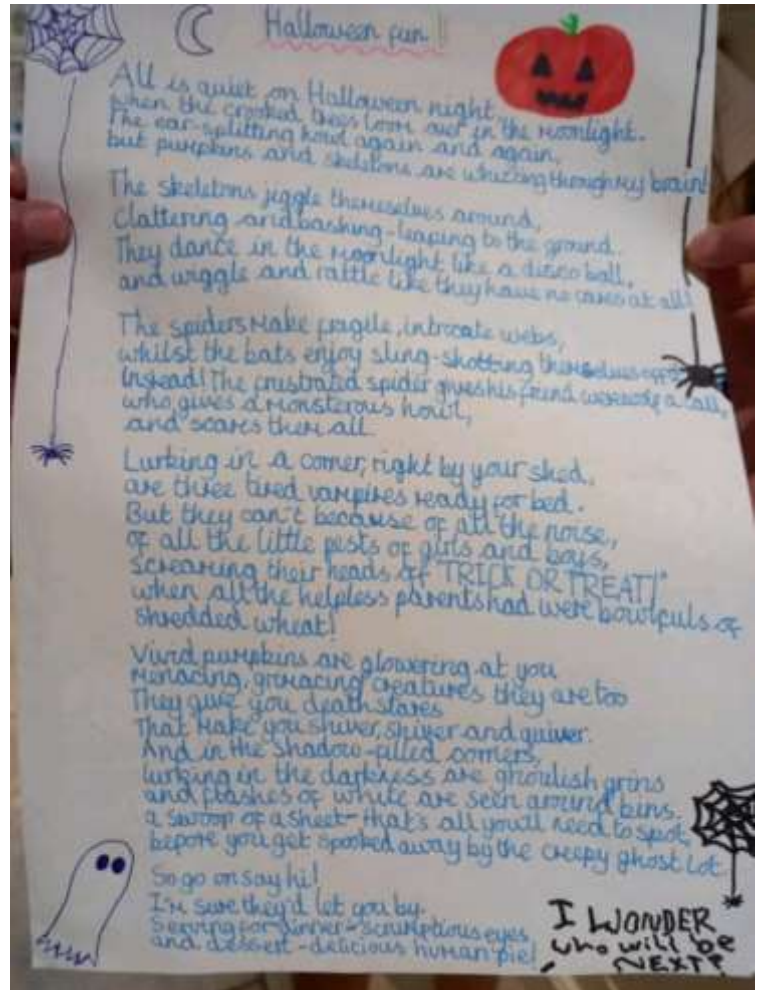 Halloween fun!
All is quiet on Halloween night,
when the crooked trees loom over in the moonlight.
The ear-splitting howl again and again,
but pumpkins and skeletons are whizzing through my brain!
The skeletons jiggle themselves around,
Clattering and bashing-leaping to the ground.
They dance in the moonlight like a disco ball,
and wiggle and rattle like they have no cares at all!
The spiders make fragile, intricate webs,
whilst the bats enjoy sling-shotting themselves
Instead! The frustrated spider gives his friend werewolf a call,
who gives a monsterous howl,
and scares them all.
Lurking in a corner, right by your shed,
are three tired vampires ready for bed.
But they can't because of all the noise,
of all the little pests of girls and boys,
screaming their heads of "TRICK OR TREAT!"
when all the helpless parents had were bowlfuls of
shredded wheat!
Vivid pumpkins are glowering at you
Menacing, grimacing creatures they are too
They give you death stares
That make you shiver, shiver and quiver.
And in the shadow-filled corners,
lurking in the darkness are ghoulish grins
and flashes of white are seen around bins.
a swoop of a sheet-that's all you'll need to spot,
before you get spooked away by the creepy ghost lot.
So go on say hi!
I'm sure they'd let you by.
Serving for dinner-scrumptious eyes
and dessert-delicious human pie!
I WONDER
who will be
NEXT?